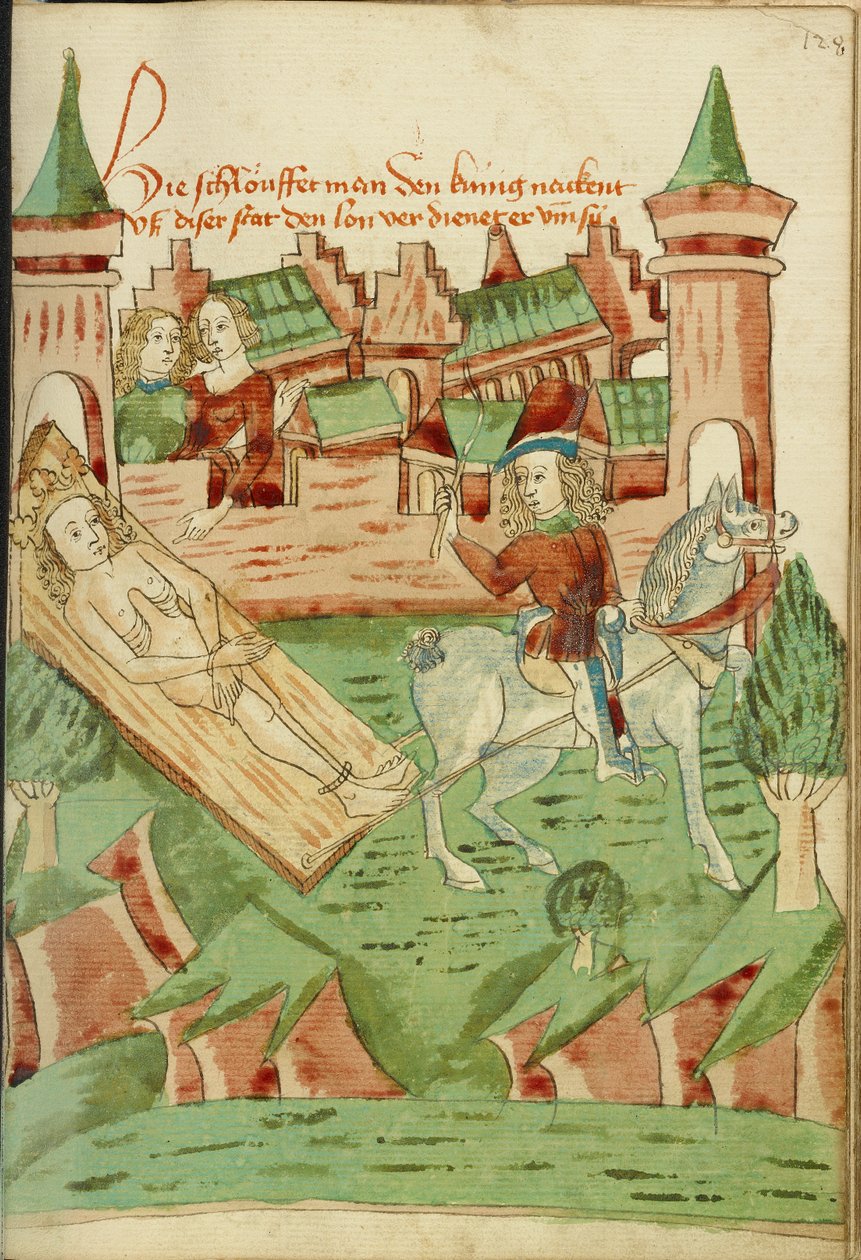 128
Hie schlöuffet man den künig nackent
vß diser stat den lon ver dienet er vm sü.